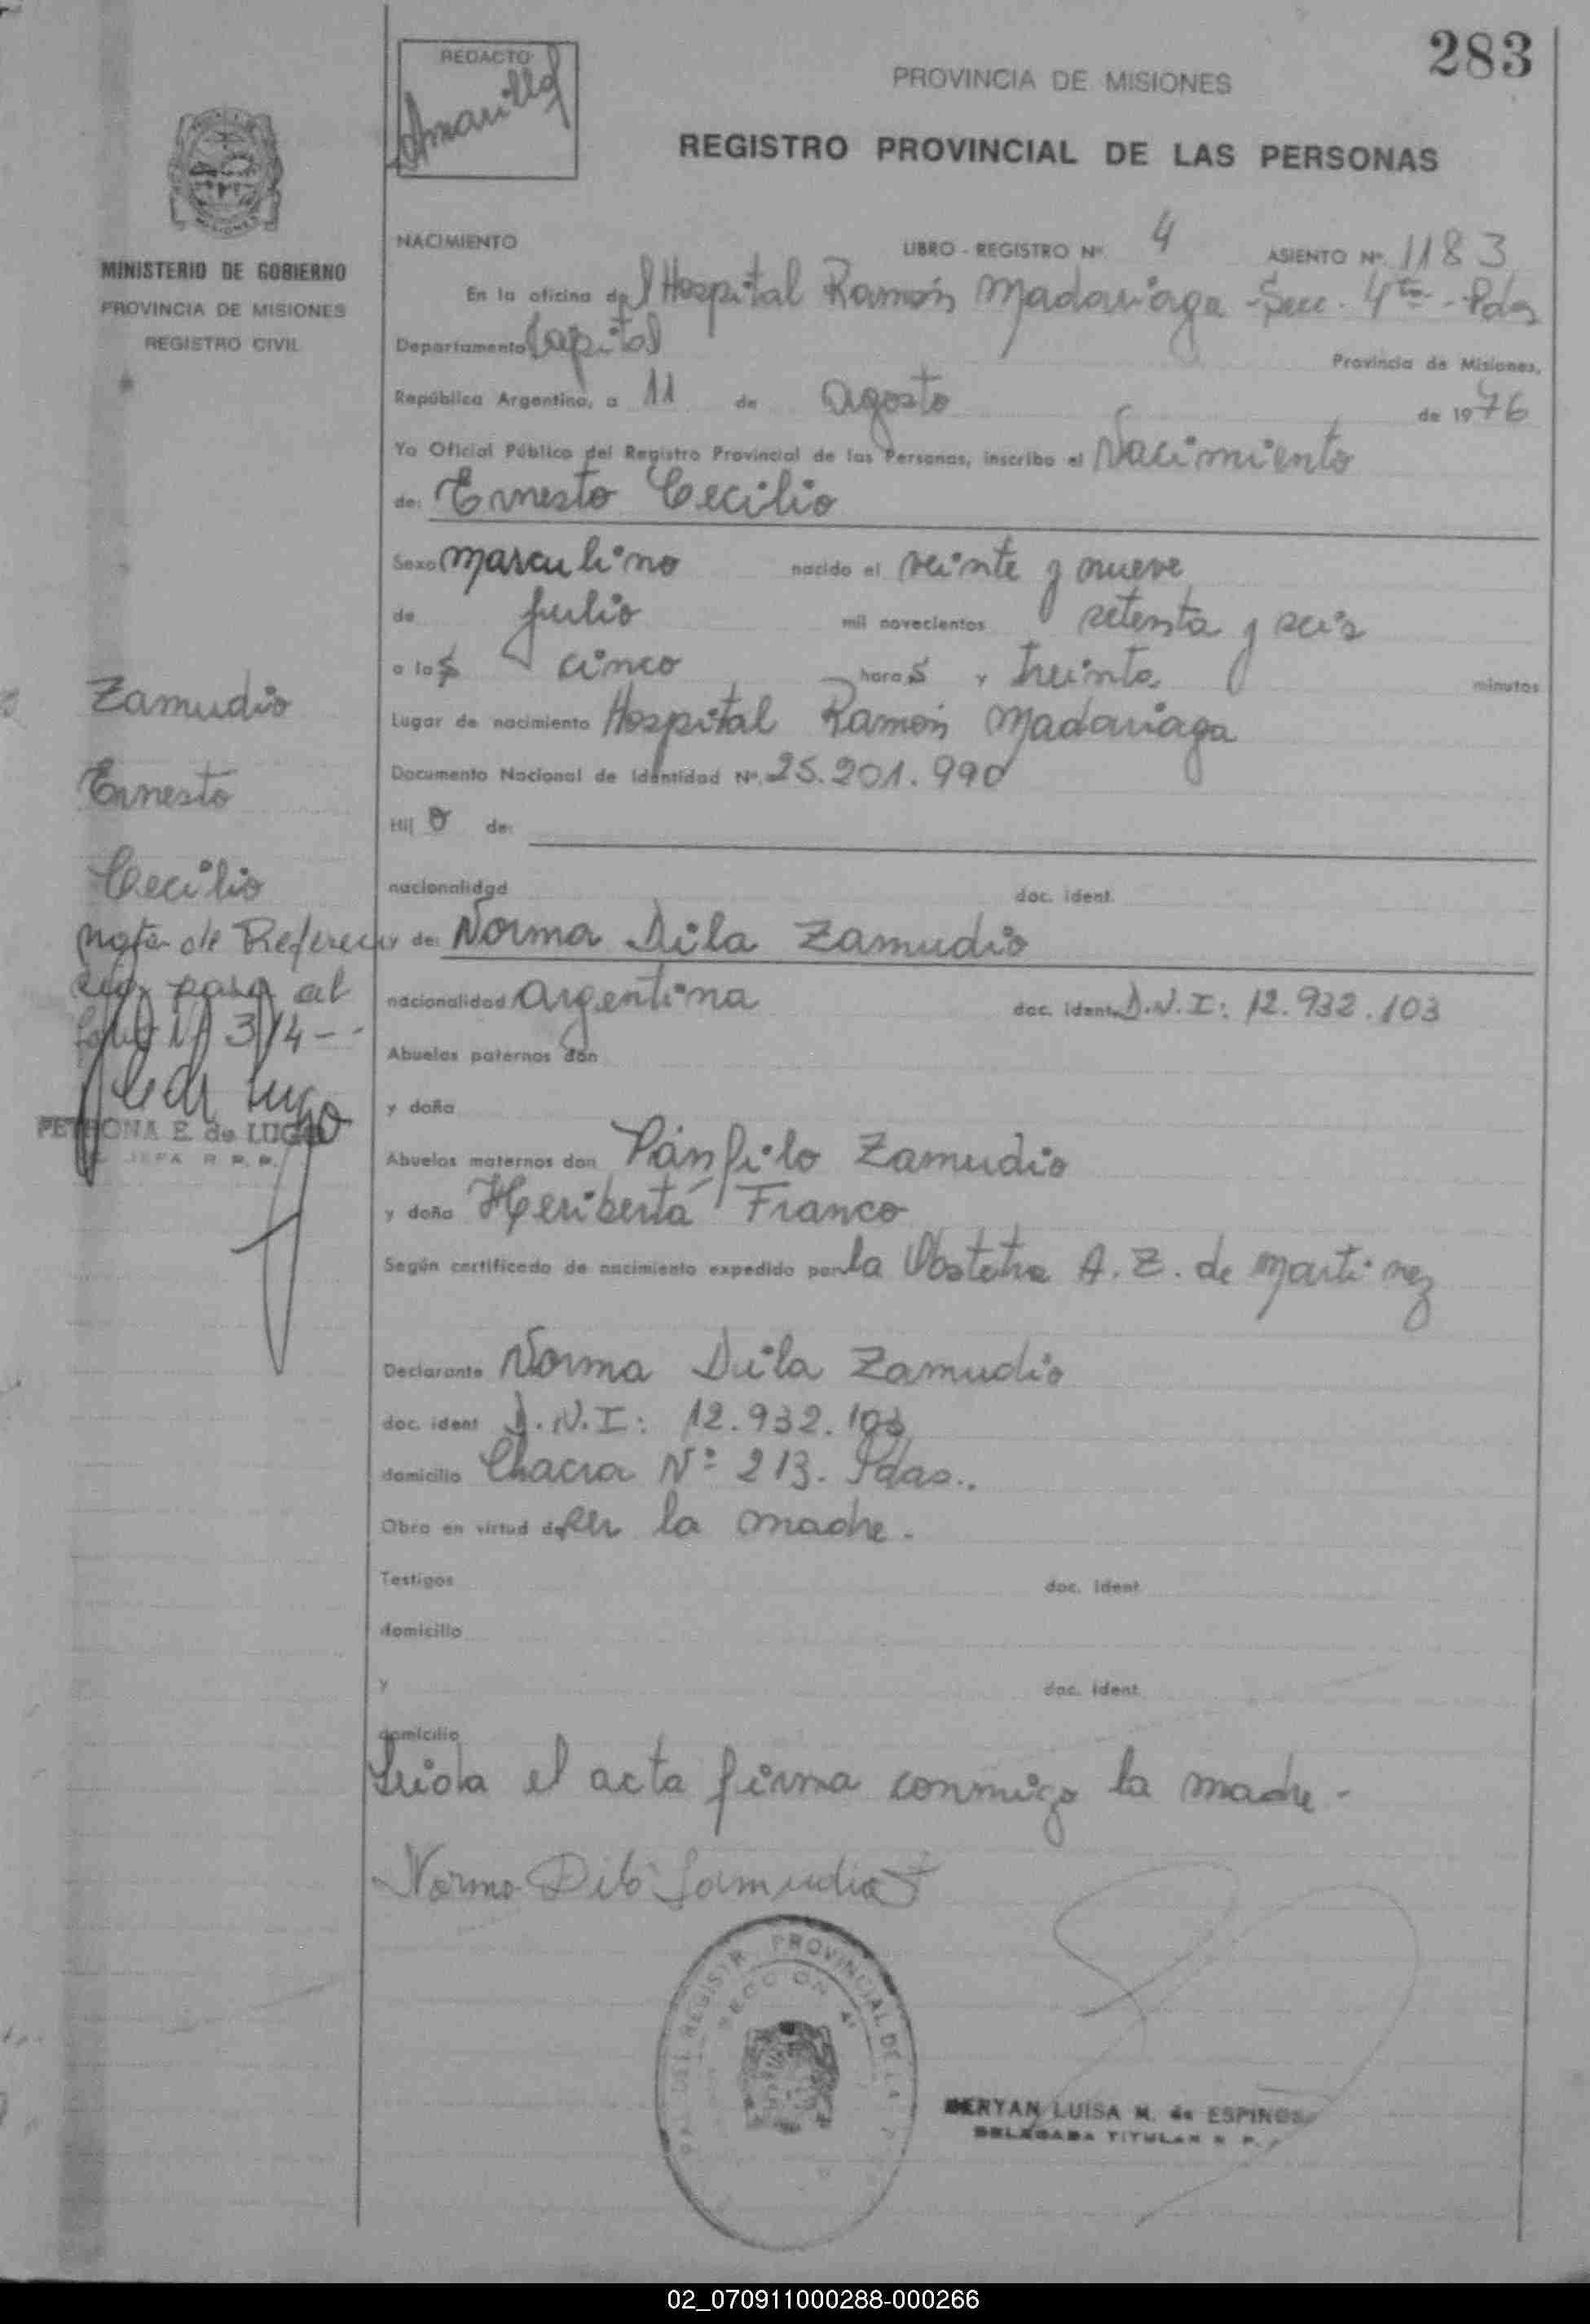 283
REDACTO
Amarilla
PROVINCIA DE MISIONES
REGISTRO PROVINCIAL DE LAS PERSONAS
MINISTERIO DE GOBIERNO
PROVINCIA DE MISIONES
REGISTRO CIVIL
NACIMIENTO LIBRO - REGISTRO Nº 4 ASIENTO Nº 1183
En la oficina del Hospital Ramón Madariaga - Secc. 4ta - Pdas
Departamento Capital Provincia de Misiones,
República Argentina, a 11 de agosto de 1976
Yo Oficial Público del Registro Provincial de las Personas, inscribo el Nacimiento
de: Ernesto Cecilio
Sexo masculino nacido el veinte y nueve
de julio mil novecientos setenta y seis
a las cinco horas y treinta minutos
Lugar de nacimiento Hospital Ramón Madariaga
Documento Nacional de Identidad Nº 25.201.990
Hijo de:
nacionalidad doc. ident.
y de: Norma Dila Zamudio
nacionalidad argentina doc. ident. D.N.I: 12.932.103
Abuelos paternos don
y doña
Abuelos maternos don Pánfilo Zamudio
y doña Heriberta Franco
Según certificado de nacimiento expedido por la Obstetra A. Z. de Martinez
Declarante Norma Dila Zamudio
doc. ident D.N.I: 12.932.103
domicilio Chacra Nº 213. Pdas..
Obra en virtud de ser la madre.
Testigos doc. ident
domicilio
y doc. ident
domicilio
Leida el acta firma conmigo la madre -
Zamudio
Ernesto
Cecilio
nota de Referen
cia pasa al
folio Nº 314 - -
PETRONA E. de LUGO
JEFA R. P. P.
REGISTR PROVINCIAL DE LA
SECCION 4ª
BERYAN LUISA M. de ESPINOSA
DELEGADA TITULAR R. P.
02_070911000288-000266